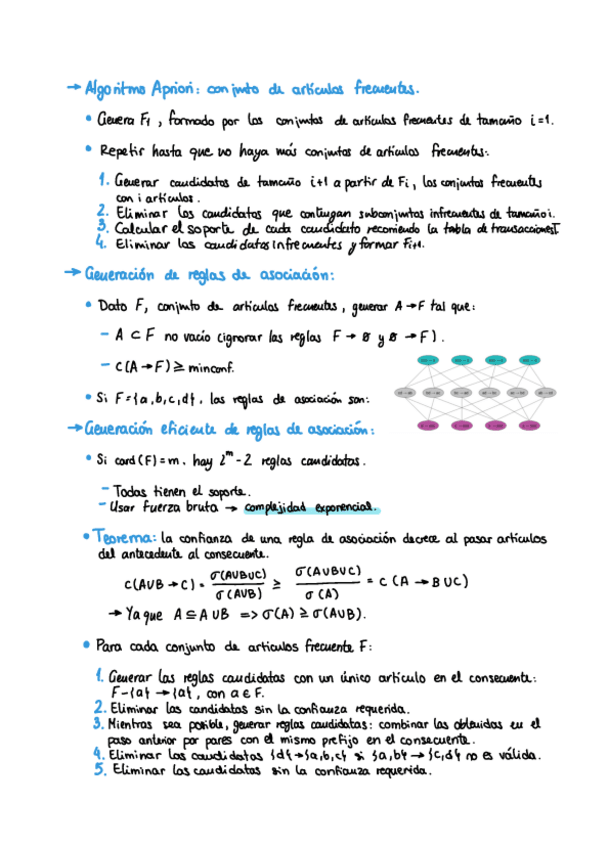 → Algoritmo Apriori: conjunto de artículos frecuentes.
• Genera F₁, formado por los conjuntos de artículos frecuentes de tamaño i=1.
• Repetir hasta que no haya más conjuntos de artículos frecuentes:
1. Generar candidatos de tamaño i+1 a partir de Fi, los conjuntos frecuentes
con i artículos.
2. Eliminar los candidatos que contengan subconjuntos infrecuentes de tamaño i.
3. Calcular el soporte de cada candidato recorriendo la tabla de transacciones T
4. Eliminar los candidatos infrecuentes y formar Fi+1.
→ Generación de reglas de asociación:
• Dato F, conjunto de artículos frecuentes, generar A → F tal que:
– A ⊂ F no vacío (ignorar las reglas F → ∅ y ∅ → F).
– C(A → F) ≥ minconf.
• Si F={a,b,c,d}, las reglas de asociación son:
→ Generación eficiente de reglas de asociación:
• Si card(F)=m, hay 2ᵐ-2 reglas candidatas.
– Todas tienen el soporte.
– Usar fuerza bruta → complejidad exponencial.
• Teorema: la confianza de una regla de asociación decrece al pasar artículos
del antecedente al consecuente.
C(A∪B → C) = σ(A∪B∪C) / σ(A∪B) ≥ σ(A∪B∪C) / σ(A) = C(A → B∪C)
→ Ya que A ⊆ A∪B => σ(A) ≥ σ(A∪B).
• Para cada conjunto de artículos frecuente F:
1. Generar las reglas candidatas con un único artículo en el consecuente:
F-{a} → {a}, con a ∈ F.
2. Eliminar los candidatas sin la confianza requerida.
3. Mientras sea posible, generar reglas candidatas: combinar las obtenidas en el
paso anterior por pares con el mismo prefijo en el consecuente.
4. Eliminar los candidatos {d} → {a,b,c} si {a,b} → {c,d} no es válida.
5. Eliminar los candidatas sin la confianza requerida.